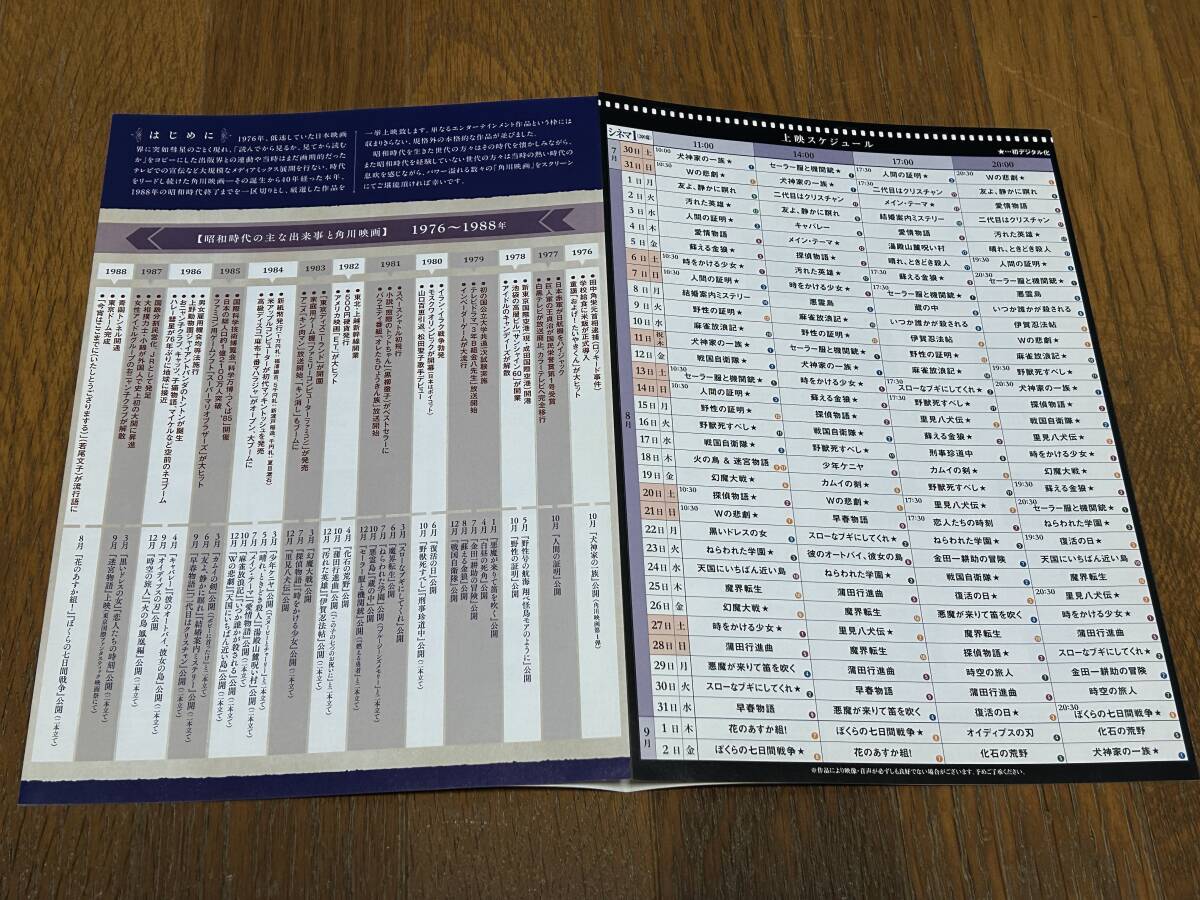 はじめに
1976年、低迷していた日本映画
界に突如彗星のごとく現れ、「読んでから見るか、見てから読む
か」をコピーにした出版界との連動や当時はまだ画期的だった
テレビでの宣伝など大規模なメディアミックス展開を行ない、時代
をリードし続けた角川映画―その誕生から40年経った本年、
1988年の昭和時代終了までを一区切りとし、厳選した作品を
一挙上映致します。単なるエンターテインメント作品という枠には
収まりきらない、規格外の本格的な作品が並びました。
昭和時代を生きた世代の方々はその時代を懐かしみながら、
また昭和時代を経験していない世代の方々は当時の熱い時代の
息吹を感じながら、パワー溢れる数々の「角川映画」をスクリーン
にてご堪能頂ければ幸いです。
【昭和時代の主な出来事と角川映画】 1976～1988年
1976
●田中角栄元首相逮捕(ロッキード事件)
●学校給食に米飯が正式導入
●童謡「およげ!たいやきくん」が大ヒット
10月 『犬神家の一族』公開(角川映画第1弾)
1977
●日本赤軍が日航機をハイジャック
●巨人軍の王貞治が国民栄誉賞第1号受賞
●白黒テレビが放送廃止、カラーテレビに完全移行
10月 『人間の証明』公開
1978
●新東京国際空港(現・成田国際空港)開港
●池袋の高層ビル「サンシャイン60」が開業
●アイドルのキャンディーズが解散
5月 『野性号の航海 翔べ怪鳥モアのように』公開
10月 『野性の証明』公開
1979
●初の国公立大学共通1次試験実施
●テレビドラマ「3年B組金八先生」放送開始
●インベーダーゲームが大流行
1月 『悪魔が来りて笛を吹く』公開
4月 『白昼の死角』公開
7月 『金田一耕助の冒険』公開
8月 『蘇える金狼』公開
12月 『戦国自衛隊』公開
1980
●イラン・イラク戦争勃発
●モスクワオリンピックが開幕(日本はボイコット)
●山口百恵引退、松田聖子歌手デビュー
6月 『復活の日』公開
10月 『野獣死すべし』『刑事珍道中』公開
1981
●スペースシャトル初飛行
●小説「窓際のトットちゃん」(黒柳徹子)がベストセラーに
●バラエティ番組「オレたちひょうきん族」放送開始
3月 『スローなブギにしてくれ』公開
6月 『魔界転生』公開
10月 『悪霊島』『蔵の中』公開
12月 『セーラー服と機関銃』公開
1982
●東北・上越新幹線開業
●500円硬貨発行
●アメリカ映画「E.T.」が大ヒット
4月 『化石の荒野』公開
10月 『蒲田行進曲』公開
12月 『汚れた英雄』『伊賀忍法帖』公開
1983
●「東京ディズニーランド」が開園
●家庭用ゲーム機「ファミリーコンピューター(ファミコン)」が発売
●アニメ「キン肉マン」放送開始、「キン消し」もブームに
3月 『幻魔大戦』公開
7月 『探偵物語』『時をかける少女』公開
12月 『里見八犬伝』公開
1984
●米アップルコンピューターが初代マッキントッシュを発売
●高級ディスコ「麻布十番マハラジャ」がオープン、大ブームに
3月 『少年ケニヤ』公開
1985
●国際科学技術博覧会(科学万博-つくば'85)開催
1986
●男女雇用機会均等法施行
●上野動物園ジャイアントパンダのトントンが誕生
●ハレー彗星が76年ぶりに地球に接近
1987
●国鉄分割民営化、JRとして発足
●大相撲力士・小錦が外国人で史上初の大関に昇進
●女性アイドルグループのおニャン子クラブが解散
1988
●青函トンネル開通
●東京ドーム完成
●「今宵はここまでにいたしとうござりまする」(若尾文子)が流行語に
8月 『花のあすか組!』『ぼくらの七日間戦争』公開(二本立て)
上映スケジュール
シネマ1
★…初デジタル化
11:00 14:00 17:00 20:00
7月
30日 土 10:30 犬神家の一族★ セーラー服と機関銃★ 17:30 人間の証明★ 20:30 Wの悲劇★
31日 日 10:30 Wの悲劇★ 犬神家の一族★ 17:30 二代目はクリスチャン 愛情物語
8月
1日 月 友よ、静かに瞑れ 二代目はクリスチャン メイン・テーマ★ 二代目はクリスチャン
2日 火 汚れた英雄★ 友よ、静かに瞑れ 結婚案内ミステリー
3日 水 人間の証明★ キャバレー 愛情物語 汚れた英雄★
4日 木 愛情物語 メイン・テーマ★ 湯殿山麓呪い村 晴れ、ときどき殺人
5日 金 蘇える金狼★ 探偵物語★ 晴れ、ときどき殺人 人間の証明★
6日 土 10:30 時をかける少女★ 汚れた英雄★ 17:30 蘇える金狼★ 20:30 セーラー服と機関銃★
7日 日 10:30 人間の証明★ 時をかける少女★ 17:30 セーラー服と機関銃★ 悪霊島
8日 月 結婚案内ミステリー 悪霊島 蔵の中 いつか誰かが殺される
9日 火 野性の証明★ 麻雀放浪記★ いつか誰かが殺される 伊賀忍法帖
10日 水 麻雀放浪記★ 野性の証明★ 伊賀忍法帖 Wの悲劇★
11日 木 犬神家の一族★ セーラー服と機関銃★ 野性の証明★ 麻雀放浪記★
12日 金 戦国自衛隊★ 犬神家の一族★ 麻雀放浪記★ 19:30 野獣死すべし★
13日 土 10:30 セーラー服と機関銃★ 時をかける少女★ 17:30 スローなブギにしてくれ★ 20:30 犬神家の一族★
14日 日 10:30 人間の証明★ 蘇える金狼★ 17:30 野獣死すべし★ 探偵物語★
15日 月 野性の証明★ 探偵物語★ 里見八犬伝★ 戦国自衛隊★
16日 火 野獣死すべし★ 戦国自衛隊★ 蘇える金狼★ 里見八犬伝★
17日 水 戦国自衛隊★ 野獣死すべし★ 刑事珍道中 時をかける少女★
18日 木 火の鳥 & 迷宮物語 少年ケニヤ カムイの剣★ 幻魔大戦★
19日 金 幻魔大戦★ カムイの剣★ 野獣死すべし★ 19:30 蘇える金狼★
20日 土 10:30 探偵物語★ Wの悲劇★ 17:30 里見八犬伝★ 20:30 セーラー服と機関銃★
21日 日 10:30 Wの悲劇★ 早春物語 17:30 恋人たちの時刻 ねらわれた学園★
22日 月 黒いドレスの女 スローなブギにしてくれ★ ねらわれた学園★ 19:30 復活の日★
23日 火 ねらわれた学園★ 彼のオートバイ、彼女の島 金田一耕助の冒険 天国にいちばん近い島
24日 水 天国にいちばん近い島 ねらわれた学園★ 戦国自衛隊★ 魔界転生
25日 木 魔界転生 蒲田行進曲 復活の日★ 20:30 里見八犬伝★
26日 金 幻魔大戦★ 魔界転生 悪魔が来りて笛を吹く 時をかける少女★
27日 土 時をかける少女★ 里見八犬伝★ 魔界転生 蒲田行進曲
28日 日 蒲田行進曲 魔界転生 探偵物語★ スローなブギにしてくれ★
29日 月 悪魔が来りて笛を吹く 蒲田行進曲 時空の旅人 金田一耕助の冒険
30日 火 スローなブギにしてくれ★ 早春物語 蒲田行進曲 時空の旅人
31日 水 早春物語 悪魔が来りて笛を吹く 復活の日★ 20:30 ぼくらの七日間戦争★
9月
1日 木 花のあすか組! ぼくらの七日間戦争★ オイディプスの刃 化石の荒野
2日 金 ぼくらの七日間戦争★ 花のあすか組! 化石の荒野 犬神家の一族★
※作品により映像・音声が必ずしも良好でない場合がございます。予めご了承ください。